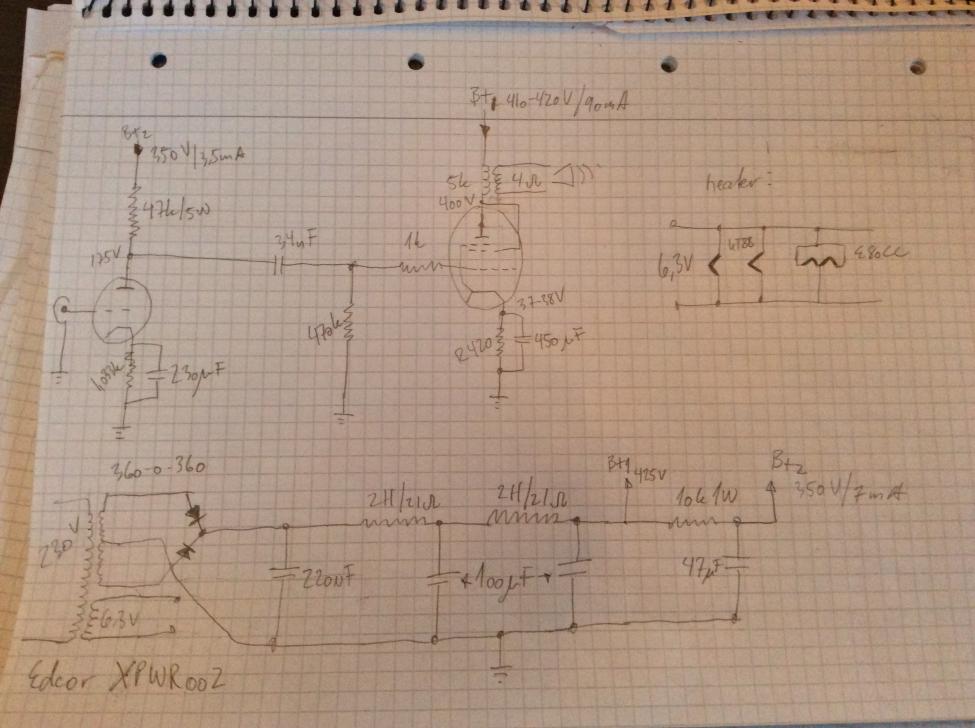 B+1 410-420V/90mA
B+2
350V/3,5mA
47k/5W
175V
5k
4Ω
400V
heater:
1k
6,3V
6T88
E80CC
37-38V
470k
R420
450µF
230µF
360-0-360
230V
2H/21Ω
2H/21Ω
B+1
425V
10k 1W
B+2
350V/7mA
100µF
47µF
6.3V
Edcor XPWR002